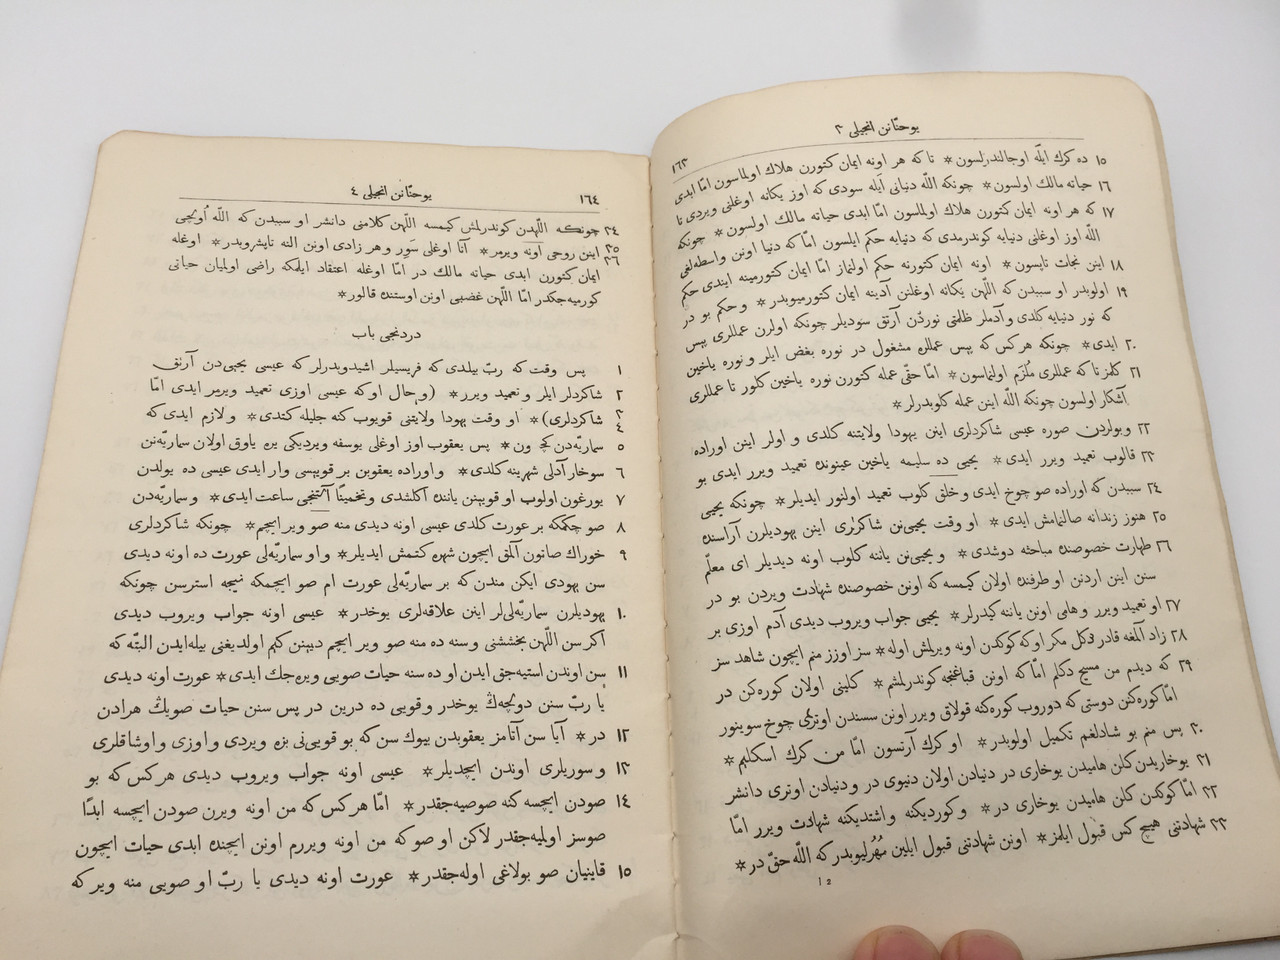 یوحنّانن انجیلی ۳
١٦٣
١٥ ده کرك ایله اوجالندرلسون* تا که هر اونه ایمان کتورن هلاك اولماسون امّا ابدی
١٦ حیاته مالك اولسون* چونکه اللّه دنیانی ایله سودی که اوز یکانه اوغلنی ویردی تا
١٧ که هر اونه ایمان کتورن هلاك اولماسون امّا ابدی حیاته مالك اولسون* چونکه
اللّه اوز اوغلنی دنیایه کوندرمدی که دنیایه حکم ایلسون امّا که دنیا اونن واسطه‌لغی
١٨ اینن نجات تاپسون* اونه ایمان کتورنه حکم اولنماز امّا ایمان کتورمینه ایندی حکم
١٩ اولوبدر او سببدن که اللّهن یکانه اوغلنن آدینه ایمان کتورمیوبدر* و حکم بو در
که نور دنیایه کلدی و آدملر ظلمتی نوردن آرتق سودیلر چونکه اولرن عمللری پیس
٢٠ ایدی* چونکه هر کس که پیس عملله مشغول در نوره بغض ایلر و نوره یاخین
٢١ کلمز تا که عمللری مُلزَم اولنماسون* امّا حقّی عمله کتورن نوره یاخین کلور تا عمللری
آشکار اولسون چونکه اللّه اینن عمله کلوبدرلر*
٢٢ و بولردن صوره عیسی شاکردلری اینن یهودا ولایتنه کلدی و اولر اینن اوراده
٢٣ قالوب تعمید ویرر ایدی* یحیی ده سلیمه یاخین عینونده تعمید ویرر ایدی بو
٢٤ سببدن که اوراده صو چوخ ایدی و خلق کلوب تعمید اولنور ایدیلر* چونکه یحیی
٢٥ هنوز زندانه صالنمامش ایدی* او وقت یحیی‌نن شاکردلری اینن یهودیلرن آراسنده
٢٦ طهارت خصوصنده مباحثه دوشدی* و یحیی‌نن یاننه کلوب اونه دیدیلر ای معلّم
سنن اینن اردنن او طرفنده اولان کیمسه که اونن خصوصنده شهادت ویردن بو در
٢٧ او تعمید ویرر و هامی اونن یاننه کیدرلر* یحیی جواب ویروب دیدی آدم اوزی بر
٢٨ زاد آلمغه قادر دکل مکر او که کوکدن اونه ویرلمش اوله* سز اوزز منم ایچون شاهد سز
٢٩ که دیدم من مسیح دکلم امّا که اونن قباغنجه کوندرلمشم* کلینی اولان کوره‌کن در
امّا کوره‌کنن دوستی که دوروب کوره‌کنه قولاق ویرر اونن سسندن اوتری چوخ سوینور
٣٠ پس منم بو شادلغم تکمیل اولوبدر* او کرك آرتسون امّا من کرك اسکلیم*
٣١ یوخاریدن کلن هامیدن یوخاری در دنیادن اولان دنیوی در و دنیادن اوتری دانشر
٣٢ امّا کوکدن کلن هامیدن یوخاری در* و کوردیکنه و اشتدیکنه شهادت ویرر امّا
٣٣ شهادتنی هیچ کس قبول ایلمز* اونن شهادتنی قبول ایلین مُهُرلیوبدر که اللّه حقّ در*
12
١٦٤
یوحنّانن انجیلی ٤
٣٤ چونکه اللّهدن کوندرلمش کیمسه اللّهن کلامنی دانشر او سببدن که اللّه اُولچی
٣٥ اینن روحی اونه ویرمر* آتا اوغلی سَوِر و هر زادی اونن النه تاپشروبدر*
٣٦ اوغله ایمان کتورن ابدی حیاته مالك در امّا اوغله اعتقاد ایلمکه راضی اولمیان حیاتی
کورمیه‌جکدر امّا اللّهن غضبی اونن اوستنده قالور*
دردنجی باب
١ پس وقت که ربّ بیلدی که فریسیلر اشیدوبدرلر که عیسی یحیی‌دن آرتق
٢ شاکردلر ایلر و تعمید ویرر* (و حال او که عیسی اوزی تعمید ویرمر ایدی امّا
٣ شاکردلری)* او وقت یهودا ولایتنی قویوب کنه جلیله کتدی*
٤ و لازم ایدی که
٥ سماریّه‌دن کچ‌ون* پس یعقوب اوز اوغلی یوسفه ویردیکی یره یاوق اولان سماریّه‌نن
٦ سوخار آدلی شهرینه کلدی* و اوراده یعقوبن بر قویپسی وار ایدی عیسی ده یولدن
٧ یورغون اولوب او قویینن یاننده آکلشدی و تخمینًا آلتنجی ساعت ایدی* و سماریّه‌دن
٨ صو چکمکه بر عورت کلدی عیسی اونه دیدی منه صو ویر ایچم* چونکه شاکردلری
٩ خوراك صاتون آلمق ایچون شهره کتمش ایدیلر* و او سماریّه‌لی عورت ده اونه دیدی
سن یهودی ایکن مندن که بر سماریّه‌لی عورت ام صو ایچمکه نیجه استرسن چونکه
١٠ یهودیلرن سماریّه‌لی‌لر اینن علاقه‌لری یوخدر* عیسی اونه جواب ویروب دیدی
اکر سن اللّهن بخششنی و سنه ده منه صو ویر ایچم دیینن کیم اولدیغنی بیله‌ایدن البتّه که
١١ سن اوندن استیه‌جق ایدن او ده سنه حیات صویی ویره‌جك ایدی* عورت اونه دیدی
یا ربّ سنن دولچه‌ڭ یوخدر و قویی ده درین در پس سنن حیات صویڭ هرادن
١٢ در* آیا سن آتامز یعقوبدن بیوك سن که بو قویی‌نی بزه ویردی و اوزی و اوشاقلری
١٣ و سوریلری اوندن ایچدیلر* عیسی اونه جواب ویروب دیدی هر کس که بو
١٤ صودن ایچسه کنه صوصیه‌جقدر* امّا هر کس که من اونه ویرن صودن ایچسه ابدًا
صوسز اولمیه‌جقدر لاکن او صو که من اونه ویررم اونن ایچنده ابدی حیات ایچون
١٥ قاینیان صو بولاغی اوله‌جقدر* عورت اونه دیدی یا ربّ او صویی منه ویر که